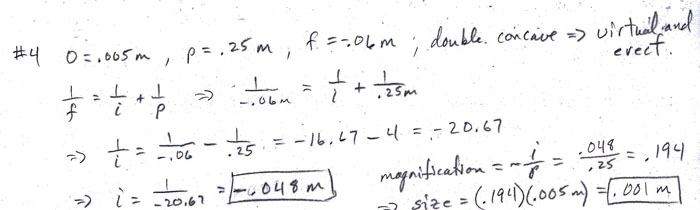 #4 O = .005 m , p = .25 m , f = -.06 m ; double concave => virtual and erect.
1/f = 1/i + 1/p => 1/-.06m = 1/i + 1/.25m
=> 1/i = 1/-.06 - 1/.25 = -16.67 - 4 = -20.67
magnification = -i/p = .048/.25 = .194
=> i = 1/-20.67 = -.048 m
=> size = (.194)(.005 m) = .001 m